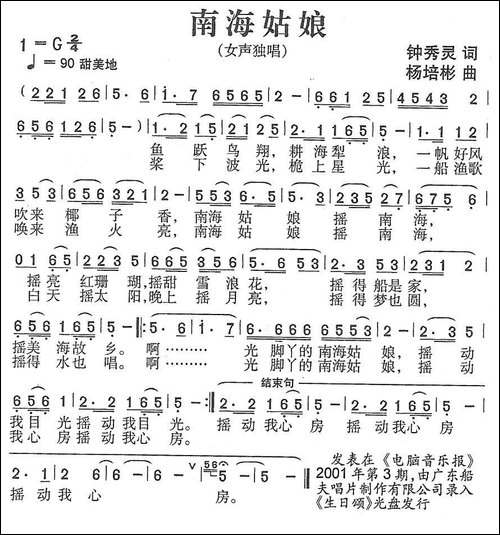 南海姑娘
(女声独唱)
1=G 2/4
♩=90 甜美地
钟秀灵 词
杨培彬 曲
(2 2 1 2 6 | 5· 6 | i· 7 | 6 5 6 5 | 2 - | 6 6 1 2 5 | 4 5 4 3 2 |
6 5 6 1 2 6 | 5 - ) | 1· 2 1 5 | 2 - | 2· 1 1 6 5 | 5 - | 1· 1 4 3 2 |
鱼跃鸟翔,耕海犁浪,一帆好风
桨下波光,桅上星光,一船渔歌
3 5 3 | 6 5 6 3 2 1 | 2 - | 5 5 3 6· 5 | 4· 5 3 2 | 6 7 5 6 |
吹来椰子香,南海姑娘摇南海,
唤来渔火亮,南海姑娘摇南海,
0 1 6 5 | 2 2 1 2 | 3· 2 3 5 | 5· 6 5 3 | 2· 3 5 3 | 2 3 1 2 |
摇亮红珊瑚,摇甜雪浪花,摇得船是家,
白天摇太阳,晚上摇月亮,摇得梦也圆,
6 5 6 1 6 5 | 5 - :‖ 5· 6 | i· 7 | 6· 6 6 6 | 6 5 6 5 2 | 2· 3 5 |
摇美海故乡。啊………光脚丫的南海姑娘,摇动
摇得水也唱。啊………光脚丫的南海姑娘,摇动
结束句
6 5 6 1 | 2· 1 6 5 | 5 - :‖ 2· 2 1 6 5 | 2· 3 5 | 2· 1 6 5 |
我目光摇动我目光。摇动我心房,摇动我心房,
我心房摇动我心房。
2· 1 | 2 6 | 5 - | 5 - | 5 - | 5 - ‖
摇动我心房。
发表在《电脑音乐报》
2001年第3期,由广东船
夫唱片制作有限公司录入
《生日颂》光盘发行